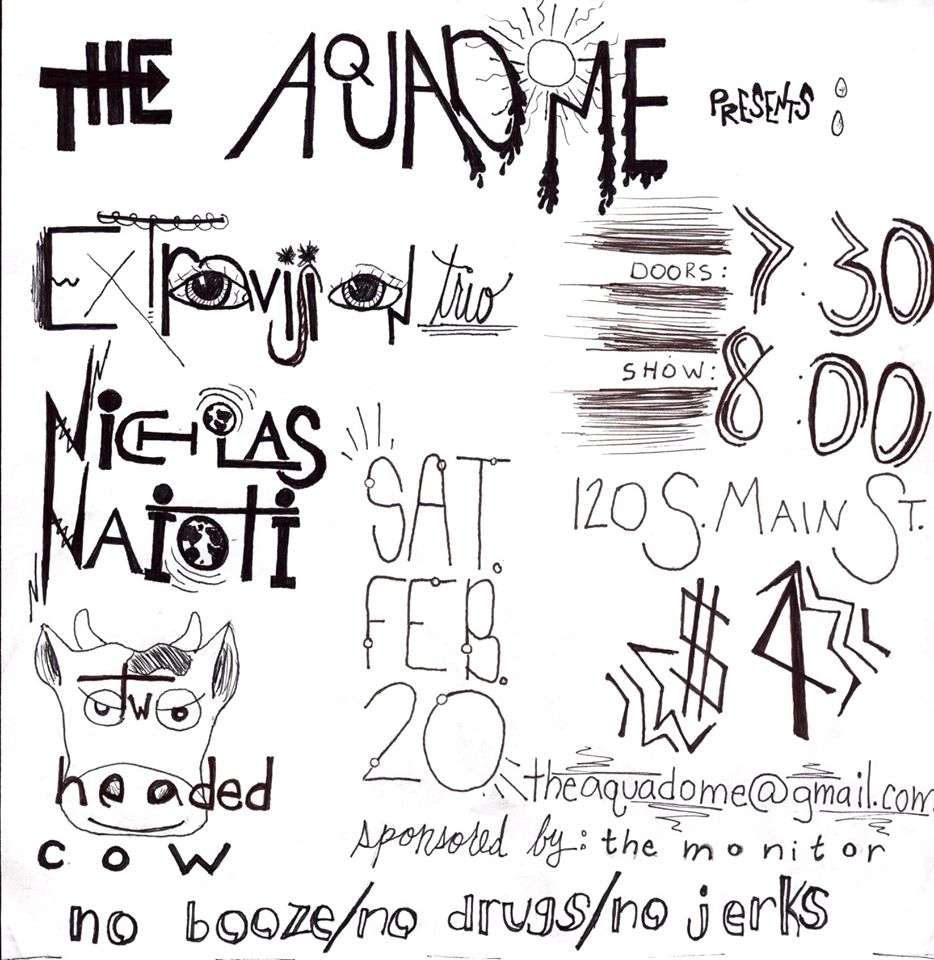 THE AQUADOME PRESENTS:
ExTravision trio
DOORS: 7:30
SHOW: 8:00
NICHOLAS
NAIOTI
SAT.
FEB.
20
120 S. MAIN ST.
$4
Two
headed
cow
theaquadome@gmail.com
sponsored by: the monitor
no booze/no drugs/no jerks